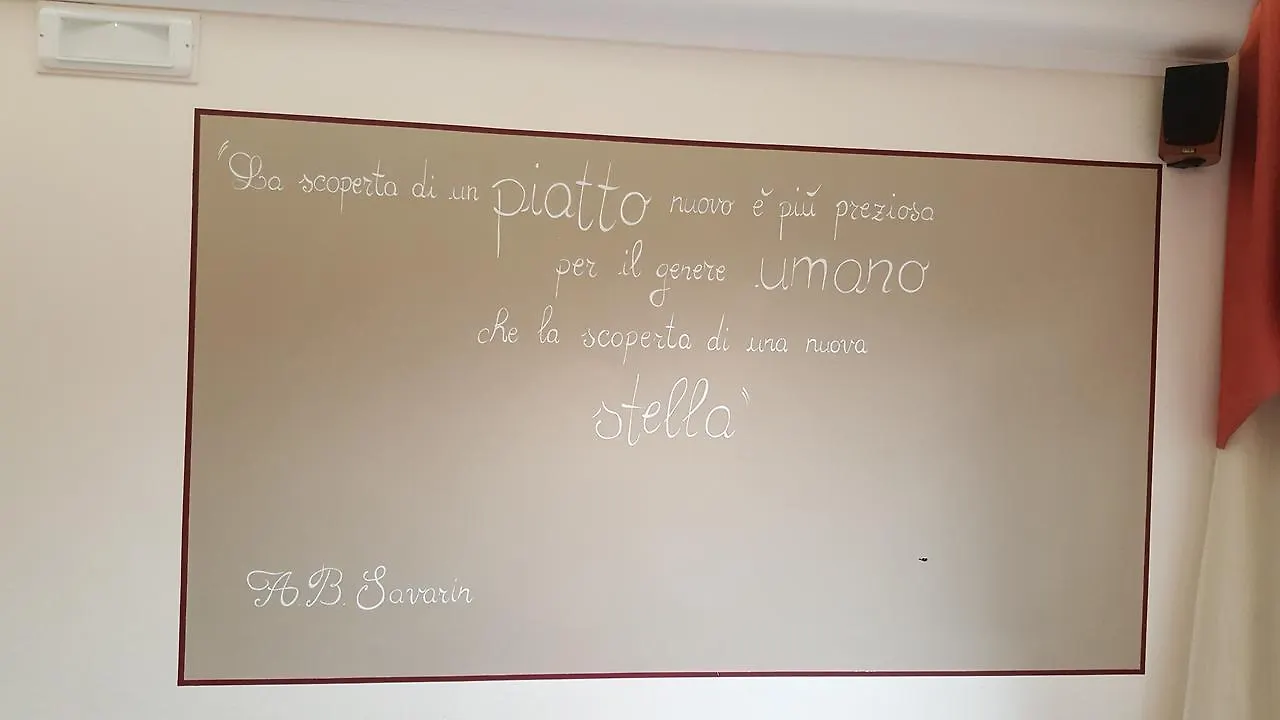 "La scoperta di un piatto nuovo è più preziosa
per il genere umano
che la scoperta di una nuova
stella"
A.B. Savarin